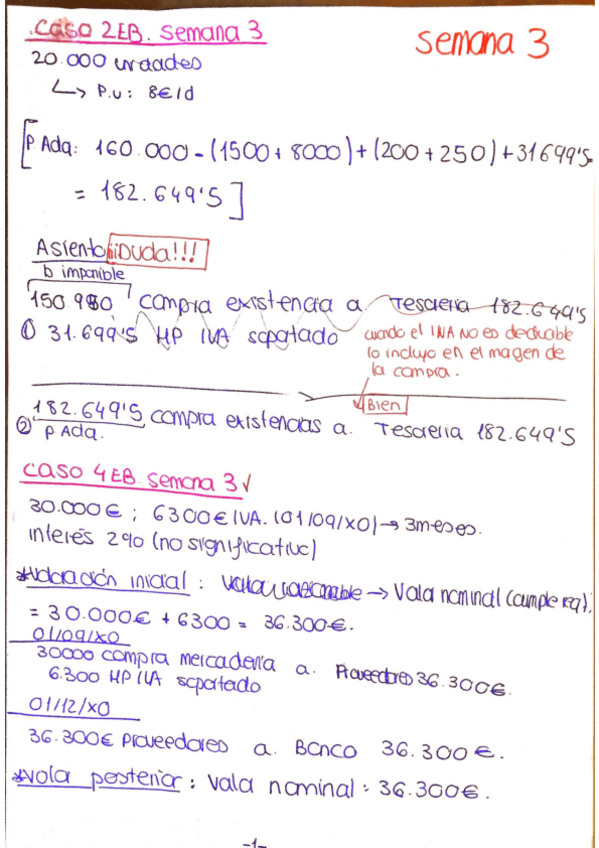 Caso 2EB. Semana 3
Semana 3
20.000 unidades
↳ P.u: 8€/d
[P Ada: 160.000 - (1500 + 8000) + (200 + 250) + 31699'5
= 182.649'5]
Asiento ¡¡Duda!!!
b imponible
150 950 compra existencia a Tesorería 182.649'5
① 31.699'5 HP IVA soportado
cuando el IVA NO es deducible
lo incluyo en el margen de
la compra.
Bien
② 182.649'5 compra existencias a. Tesorería 182.649'5
P Ada.
Caso 4EB. Semana 3 ✓
30.000€ ; 6300€ IVA. (01/09/X0) → 3 meses.
interés 2% (no significativo)
*Valoración inicial : Valor razonable → Valor nominal (cumple req).
= 30.000€ + 6300 = 36.300€.
01/09/X0
30000 compra mercadería a. Proveedores 36.300€.
6.300 HP IVA soportado
01/12/X0
36.300€ Proveedores a. Banco 36.300€.
*Valor posterior : Valor nominal : 36.300€.
-1-